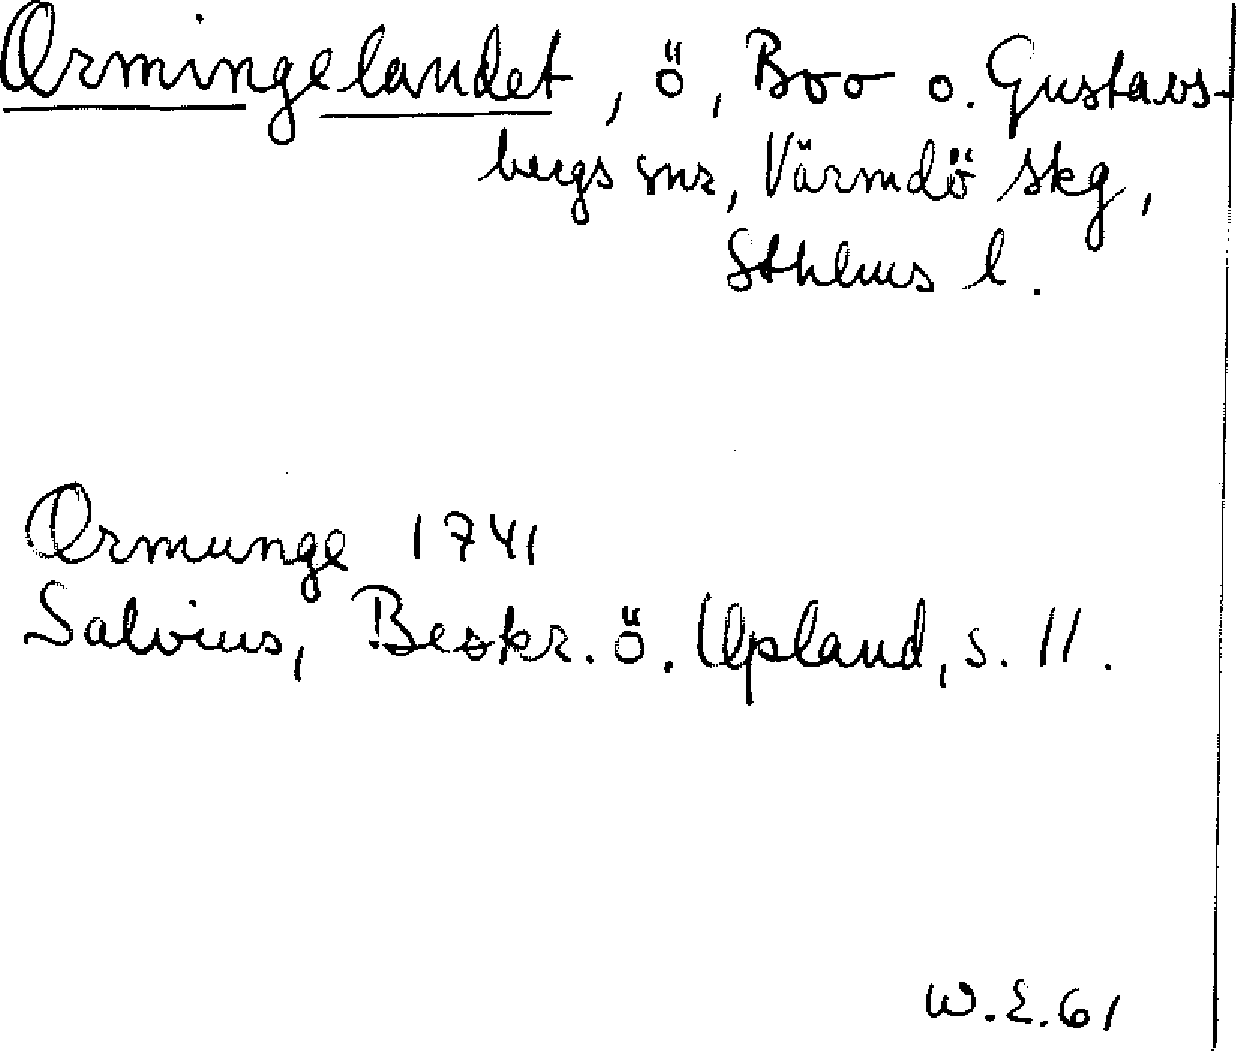 Ormingelandet, ö, Boo o. Gustavs-
bergs snr, Värmdö skg,
Sthlms l.
Ormunge 1741
Salvius, Beskr. ö. Upland, s. 11.
W.E. 61